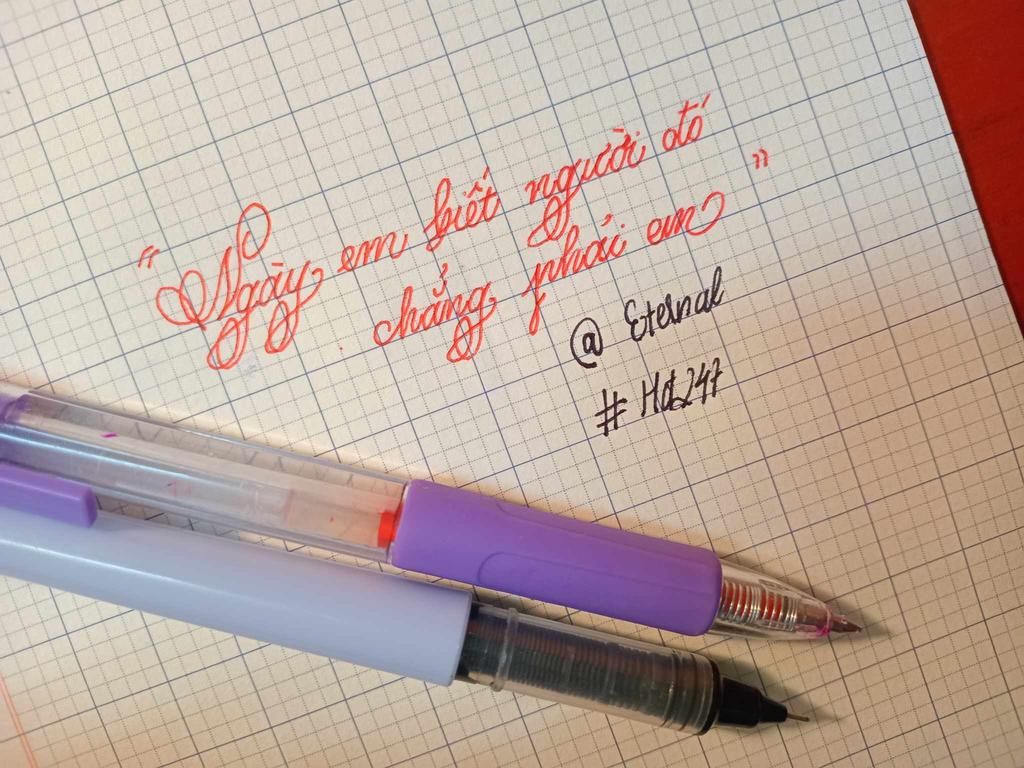 “ Ngày em biết người đó
chẳng phải em ”
@ Eternal
# Hd247